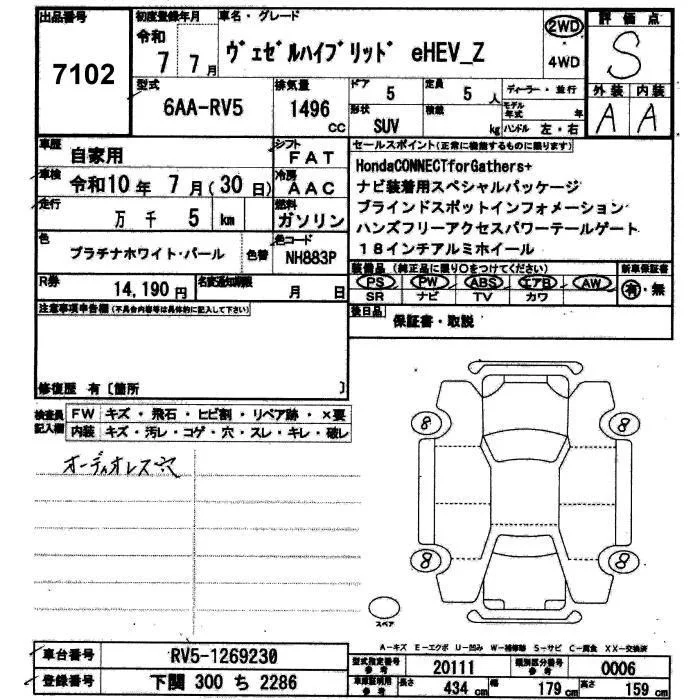 出品番号
7102
初度登録年月
令和
7 7月
車名・グレード
ヴェゼルハイブリッド eHEV_Z
2WD
4WD
評価点
S
外装 内装
A A
型式
6AA-RV5
排気量
1496 cc
ドア 5
定員 5 人
形状
SUV
積載 kg
ディーラー・並行
モデル年式 年
ハンドル 左・右
車歴 自家用
シフト FAT
車検 令和10年 7月(30日)
冷房 AAC
走行 万 千 5 km
燃料 ガソリン
色 プラチナホワイト・パール
色替
色コード NH883P
R券 14,190円
名変通知期限 月 日
セールスポイント(正常に機能するものに限ります)
HondaCONNECTforGathers+
ナビ装着用スペシャルパッケージ
ブラインドスポットインフォメーション
ハンズフリーアクセスパワーテールゲート
18インチアルミホイール
装備品(純正品に限り○をつけてください)
新車保証書
PS PW ABS エアB AW
有・無
SR ナビ TV カワ
後日品 保証書・取説
注意事項申告欄(不具合内容等は具体的に記入して下さい)
修復歴 有〔箇所 〕
検査員記入欄
FW キズ・飛石・ヒビ割・リペア跡・×要
内装 キズ・汚レ・コゲ・穴・スレ・キレ・破レ
オーディオレス穴
8 8
8 8
スペア
A-キズ E-エクボ U-凹み W-補修跡 S-サビ C-腐食 XX-交換済
車台番号 RV5-1269230
登録番号 下関 300 ち 2286
型式指定番号 参考 20111
類別区分番号 参考 0006
車庫証明用 参考 長さ 434 cm 幅 179 cm 高さ 159 cm